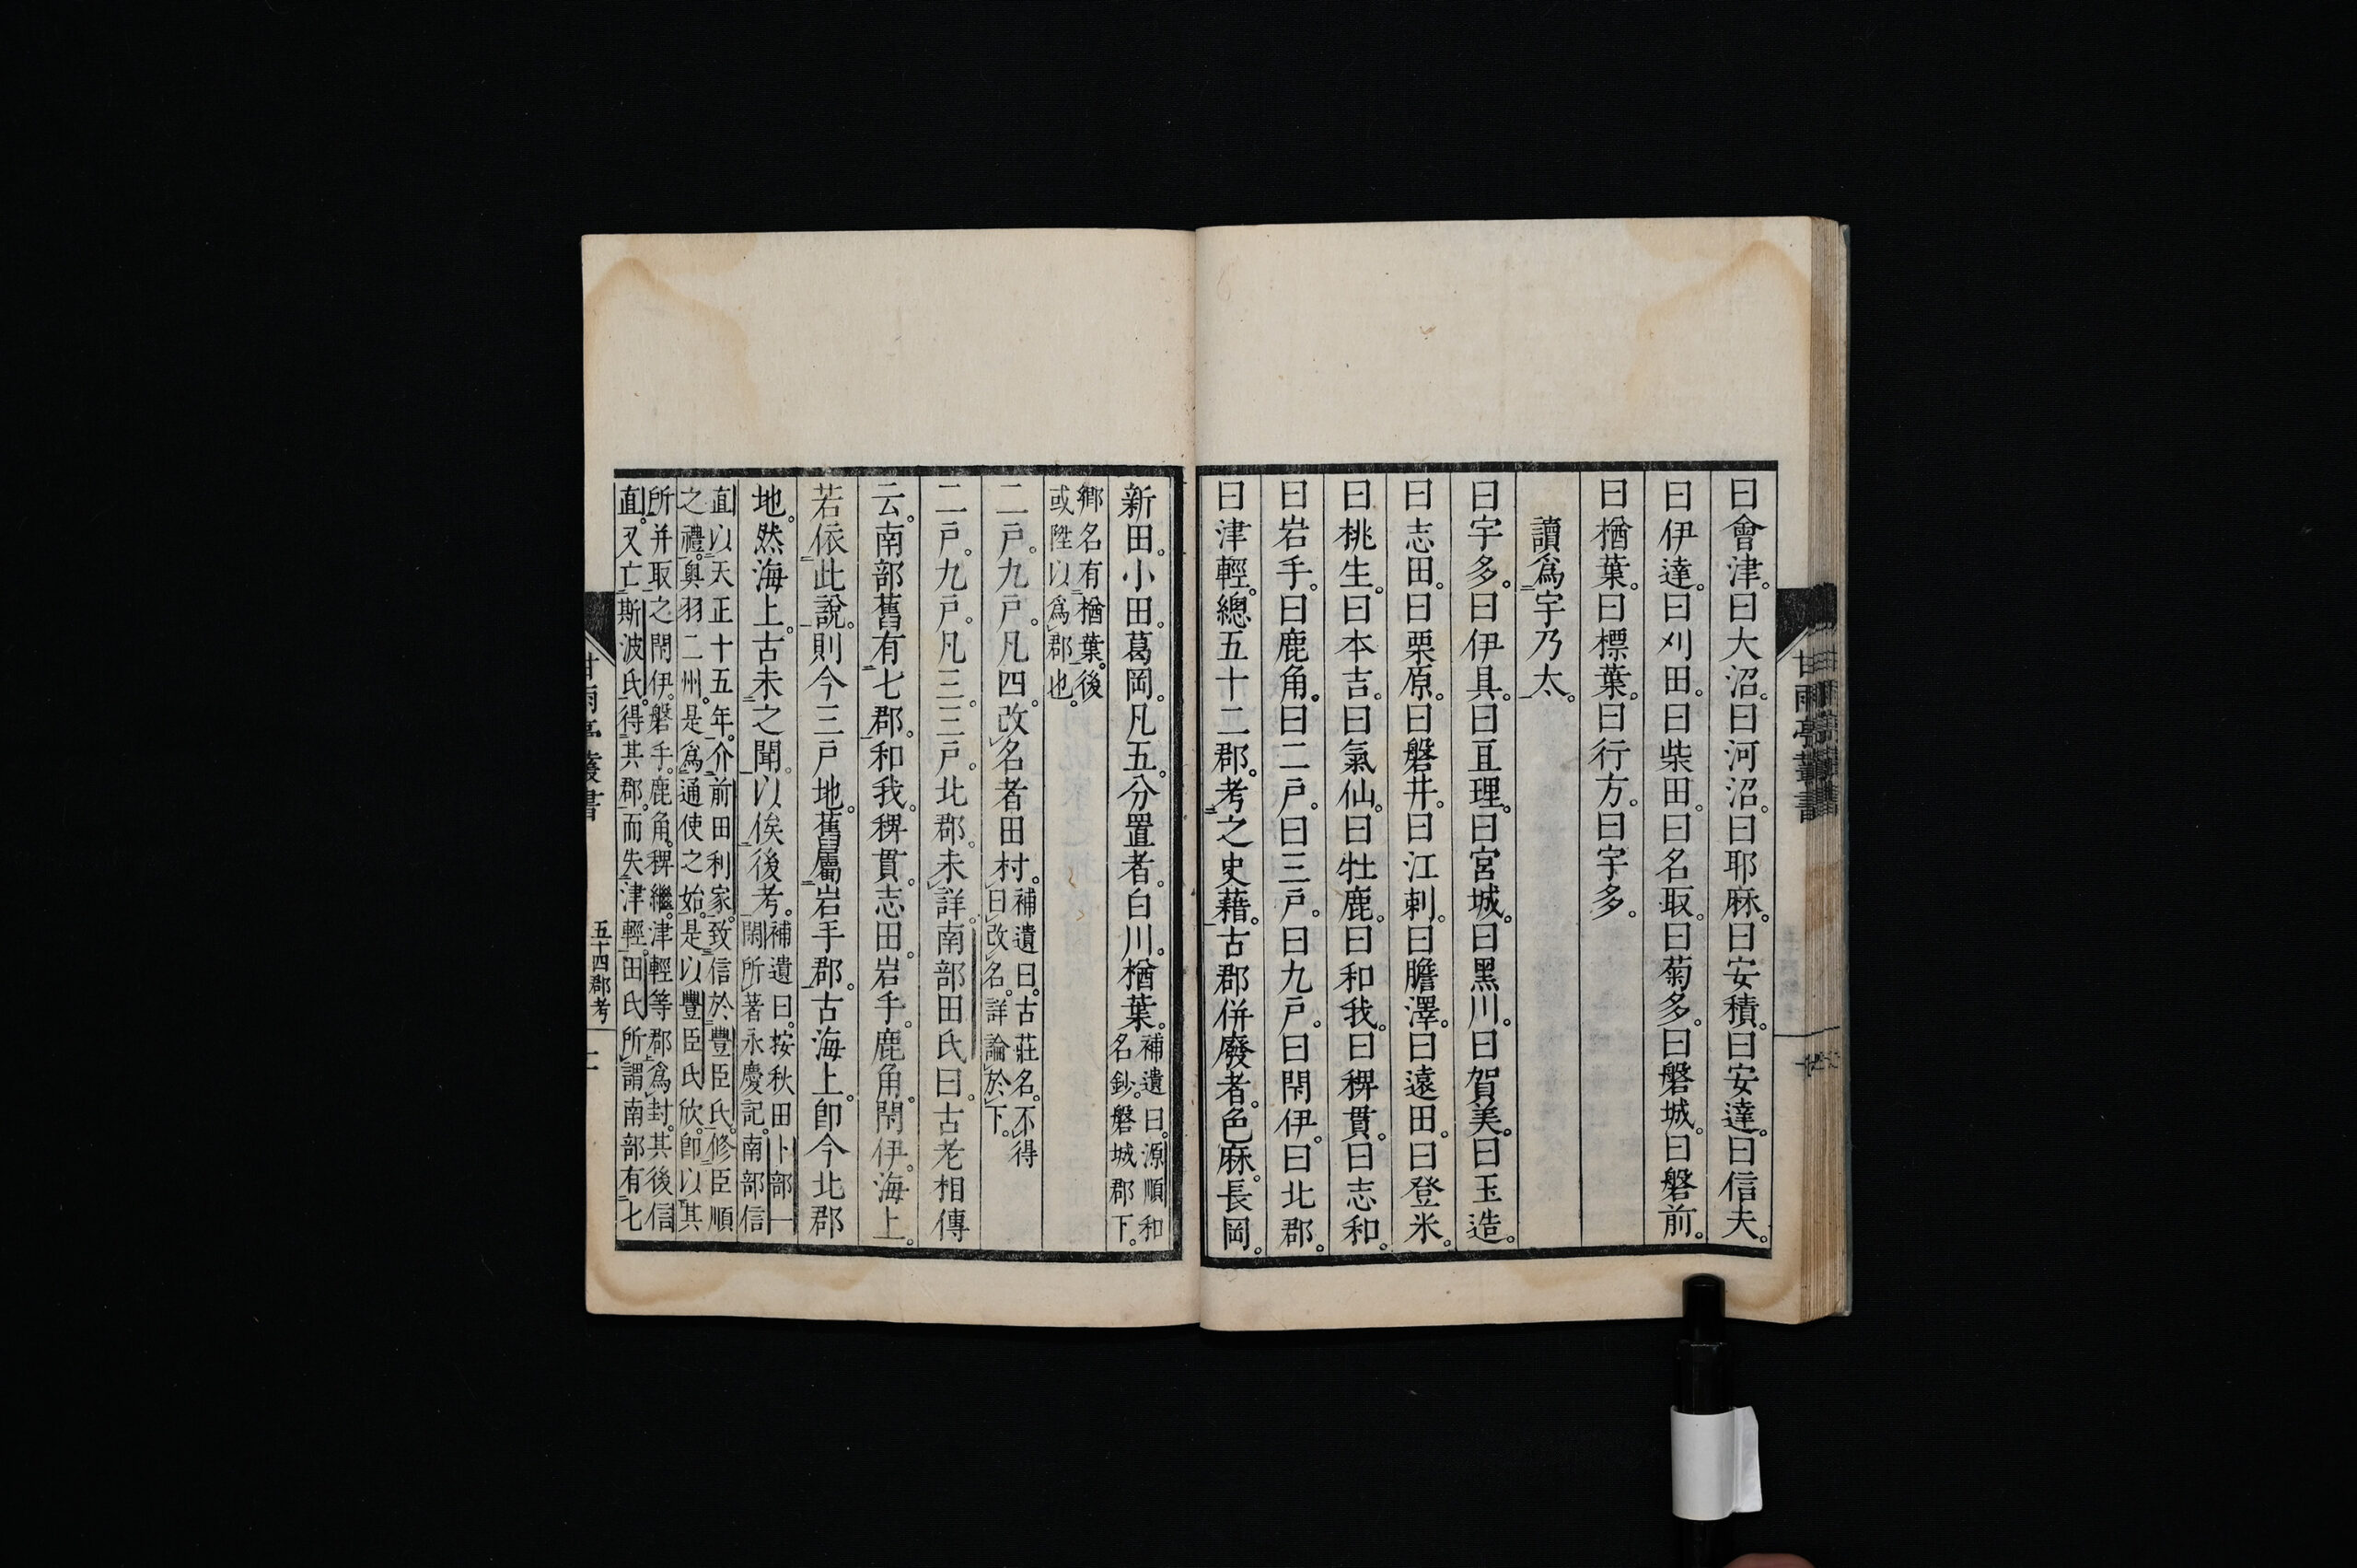 曰會津。曰大沼。曰河沼。曰耶麻。曰安積。曰安達。曰信夫。
曰伊達。曰刈田。曰柴田。曰名取。曰菊多。曰磐城。曰磐前。
曰楢葉。曰標葉。曰行方。曰宇多。
讀爲宇乃太。
曰宇多。曰伊具。曰亘理。曰宮城。曰黑川。曰賀美。曰玉造。
曰志田。曰栗原。曰磐井。曰江刺。曰膽澤。曰遠田。曰登米。
曰桃生。曰本吉。曰氣仙。曰牡鹿。曰和我。曰稗貫。曰志和。
曰岩手。曰鹿角。曰二戶。曰三戶。曰九戶。曰閉伊。曰北郡。
曰津輕。總五十二郡。考之史藉。古郡併廢者。色麻。長岡。
新田。小田。葛岡。凡五。分置者。白川。楢葉。
補遺曰。源順和
名鈔。磐城郡下。
鄉名有楢葉。後
或陞以爲郡也。
二戶。九戶。凡四。改名者田村。
補遺曰。古莊名。不得
曰改名。詳論於下。
二戶。九戶。凡三。三戶。北郡。未詳。南部田氏曰。古老相傳
云。南部舊有七郡。和我。稗貫。志田。岩手。鹿角。閉伊。海上。
若依此說。則今三戶地。舊屬岩手郡。古海上。卽今北郡
地。然海上。古未之聞。以俟後考。
補遺曰。按秋田卜部一
閑所著永慶記。南部信
直以天正十五年。介前田利家。致信於豐臣氏。修臣順
之禮。奥羽二州。是爲通使之始。是以豐臣氏欣。卽以其
所并取之閉伊。磐手。鹿角。稗繼。津輕等郡爲封。其後信
直。又亡斯波氏。得其郡。而失津輕。田氏所謂南部有七
甘雨亭叢書
五十四郡考